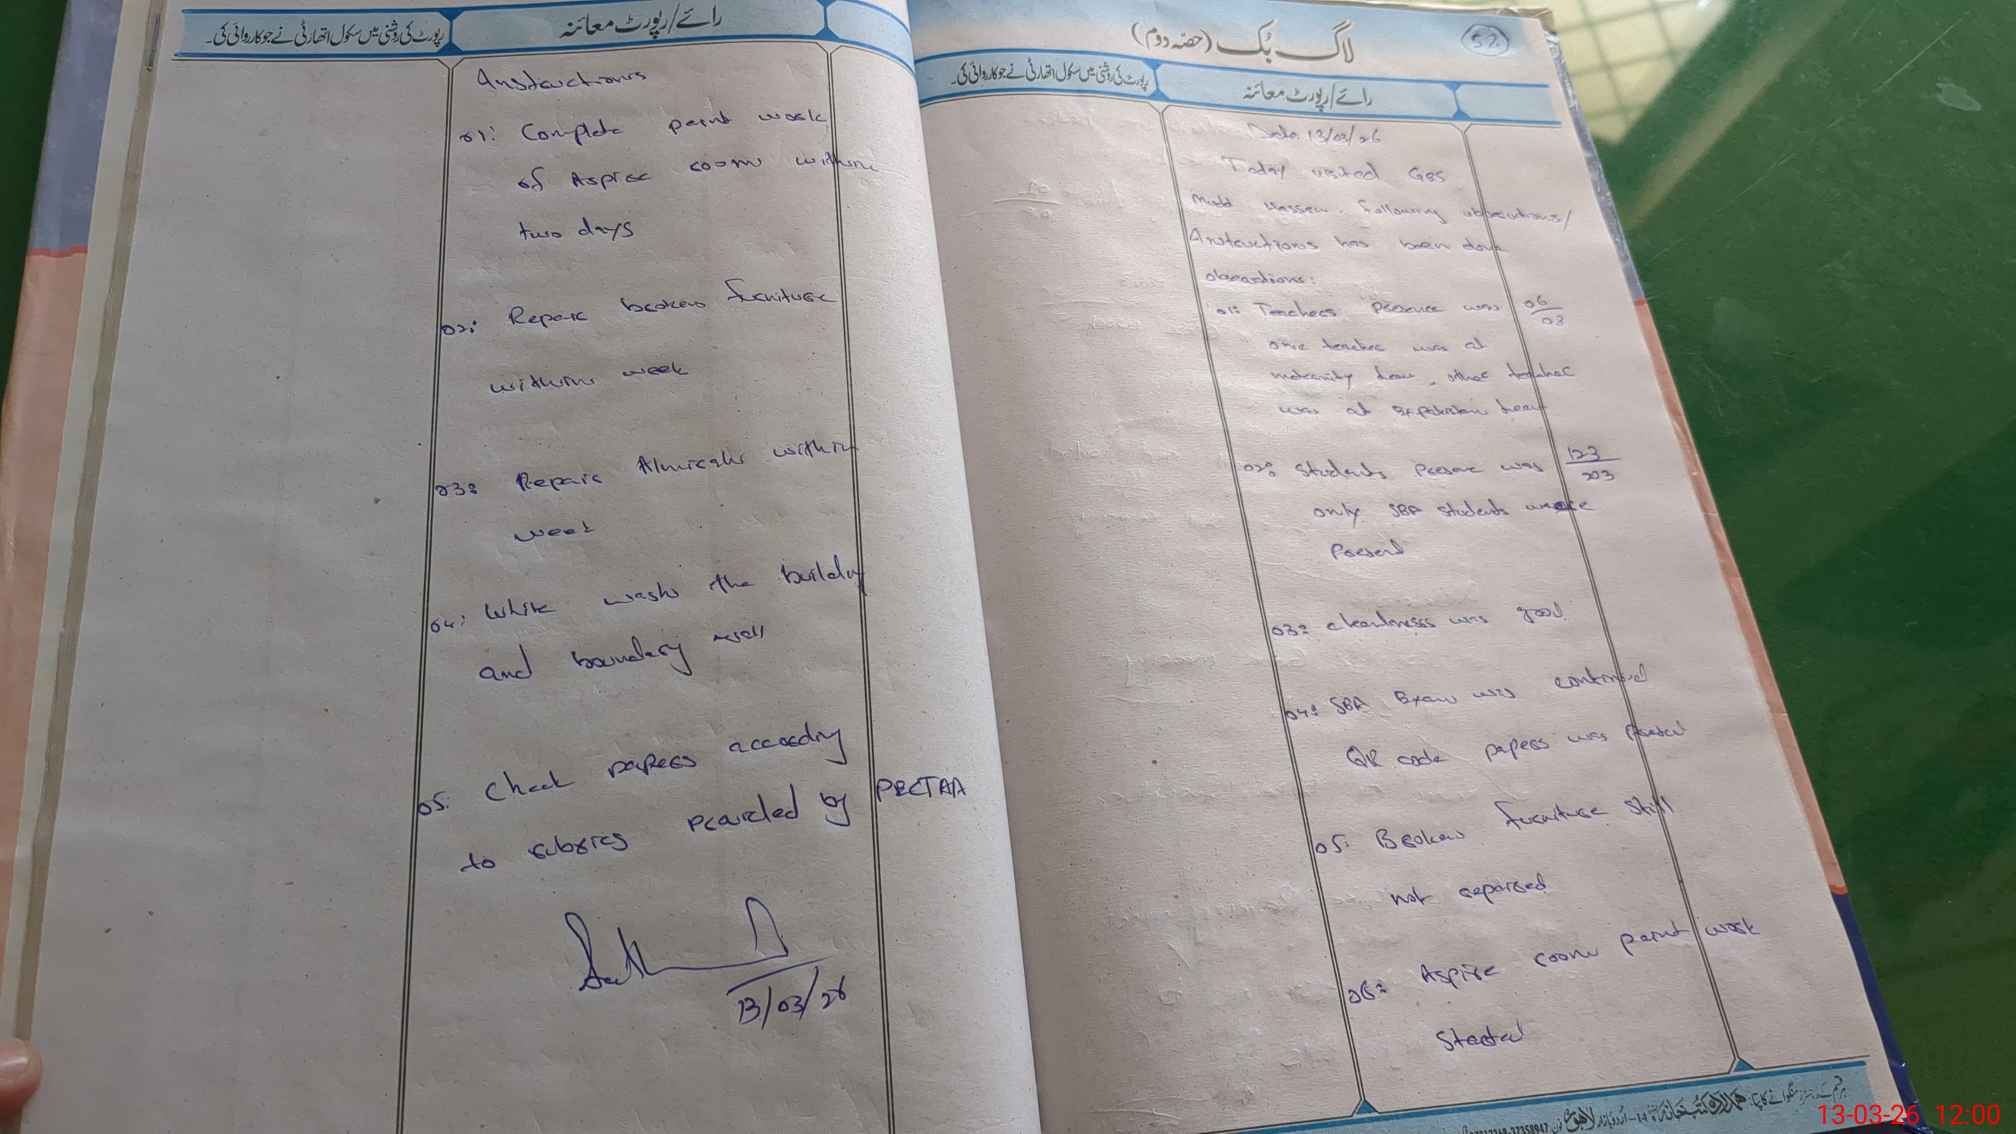 رائے/رپورٹ معائنہ
رپورٹ کی روشنی میں سکول اتھارٹی نے جو کاروائی کی۔
Instructions
01: Complete paint work
of Aspire room within
two days
02: Repair broken furniture
within week
03: Repair Almirahs within
week
04: White wash the building
and boundary wall
05: Check papers according
to rubrics provided by PECTAA
13/03/26
52
لاگ بک (حصہ دوم)
رائے/رپورٹ معائنہ
رپورٹ کی روشنی میں سکول اتھارٹی نے جو کاروائی کی۔
Date 13/03/26
Today visited GES
Following observations/
Instructions has been done
observations:
01: Teachers Presence was 06/08
one teacher was at
maternity leave, other teacher
was at leave
02: Students Presence was 123/203
only SBA students were
Present
03: cleanliness was good
04: SBA Exam was continued
QR code papers was pasted
05: Broken furniture still
not repaired
06: Aspire room paint work
Started
13-03-26 12:00